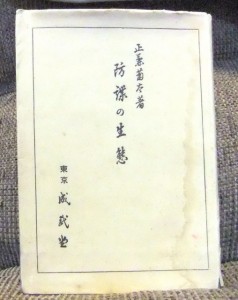 正兼菊太著
防諜の生態
東京 成武堂